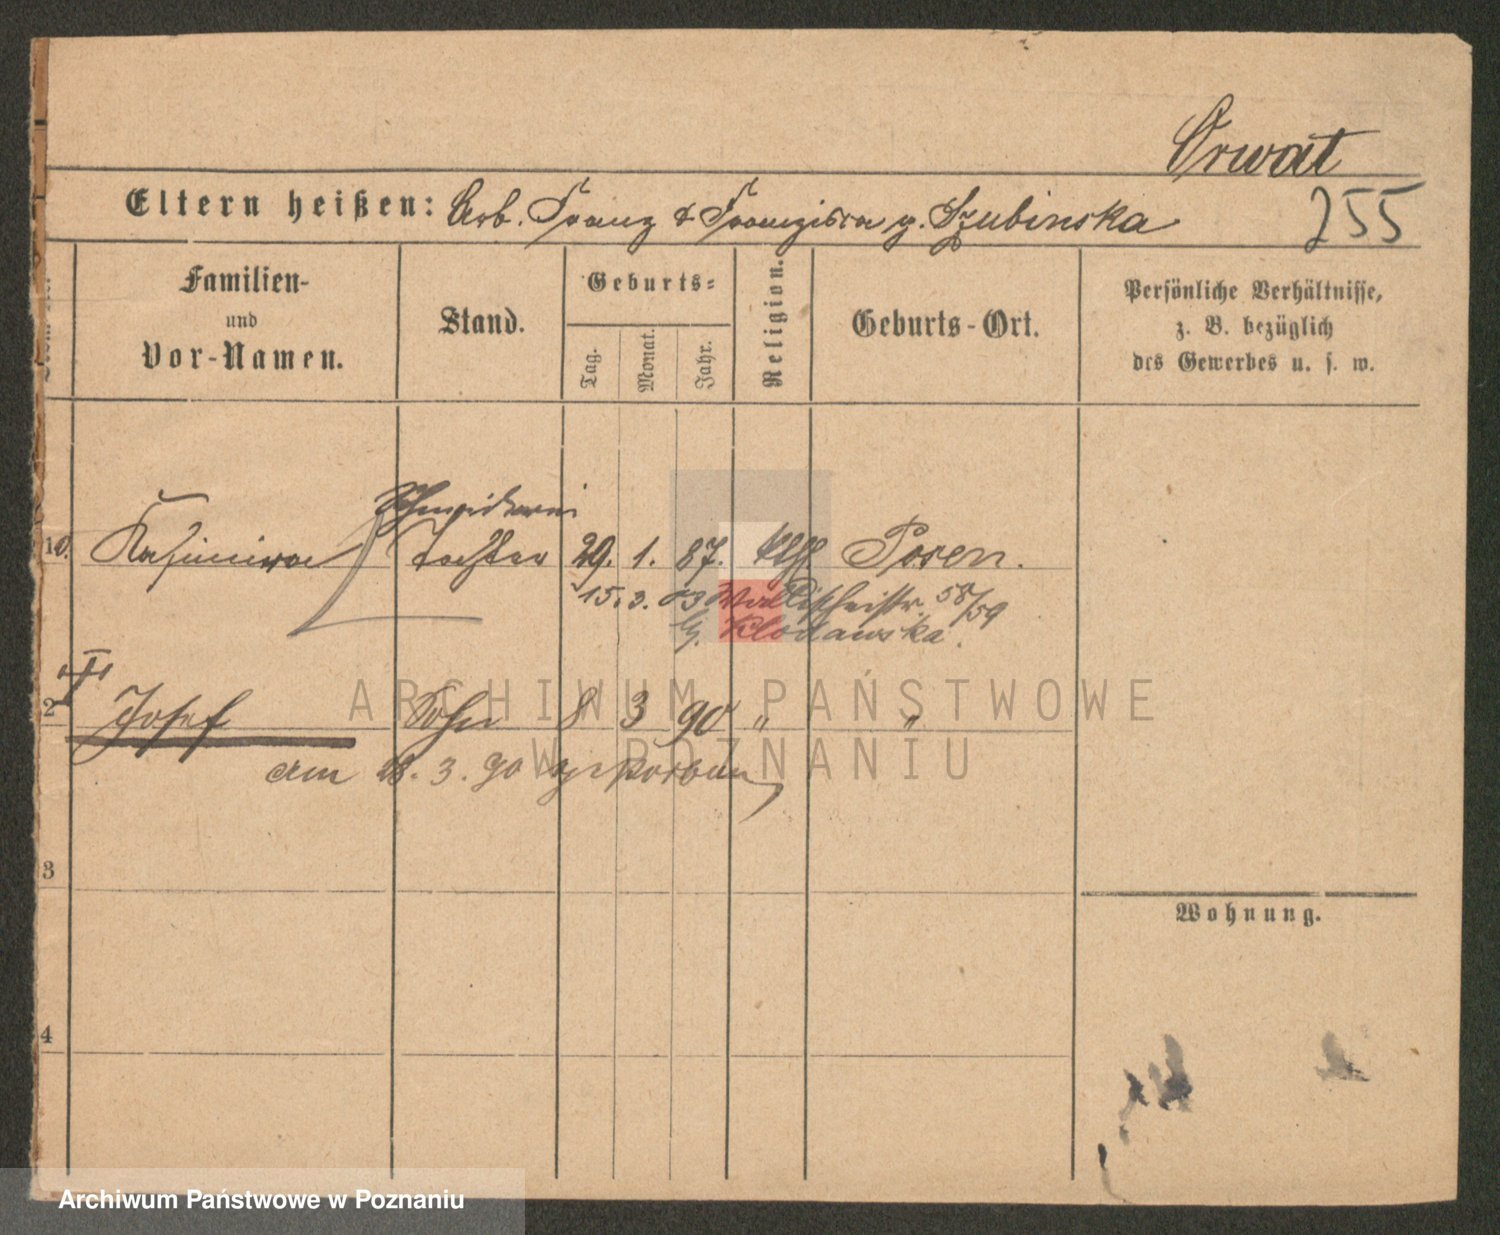 Orwat
Eltern heißen: Arb. Franz & Franziska g. Szubinska
255
Familien-
und
Vor-Namen.
Stand.
Geburts-
Tag.
Monat.
Jahr.
Religion.
Geburts-Ort.
Persönliche Verhältnisse,
z. B. bezüglich
des Gewerbes u. s. w.
Schneiderin
1 Kasimira Tochter 29. 1. 87. kth. Posen.
15. 3. 03 Wallischeistr. 58/59
b. Klodawska.
2 Josef Sohn 8 3 90 " "
am 28. 3. 90 verstorben
3
Wohnung.
4
ARCHIWUM PAŃSTWOWE
W POZNANIU
Archiwum Państwowe w Poznaniu